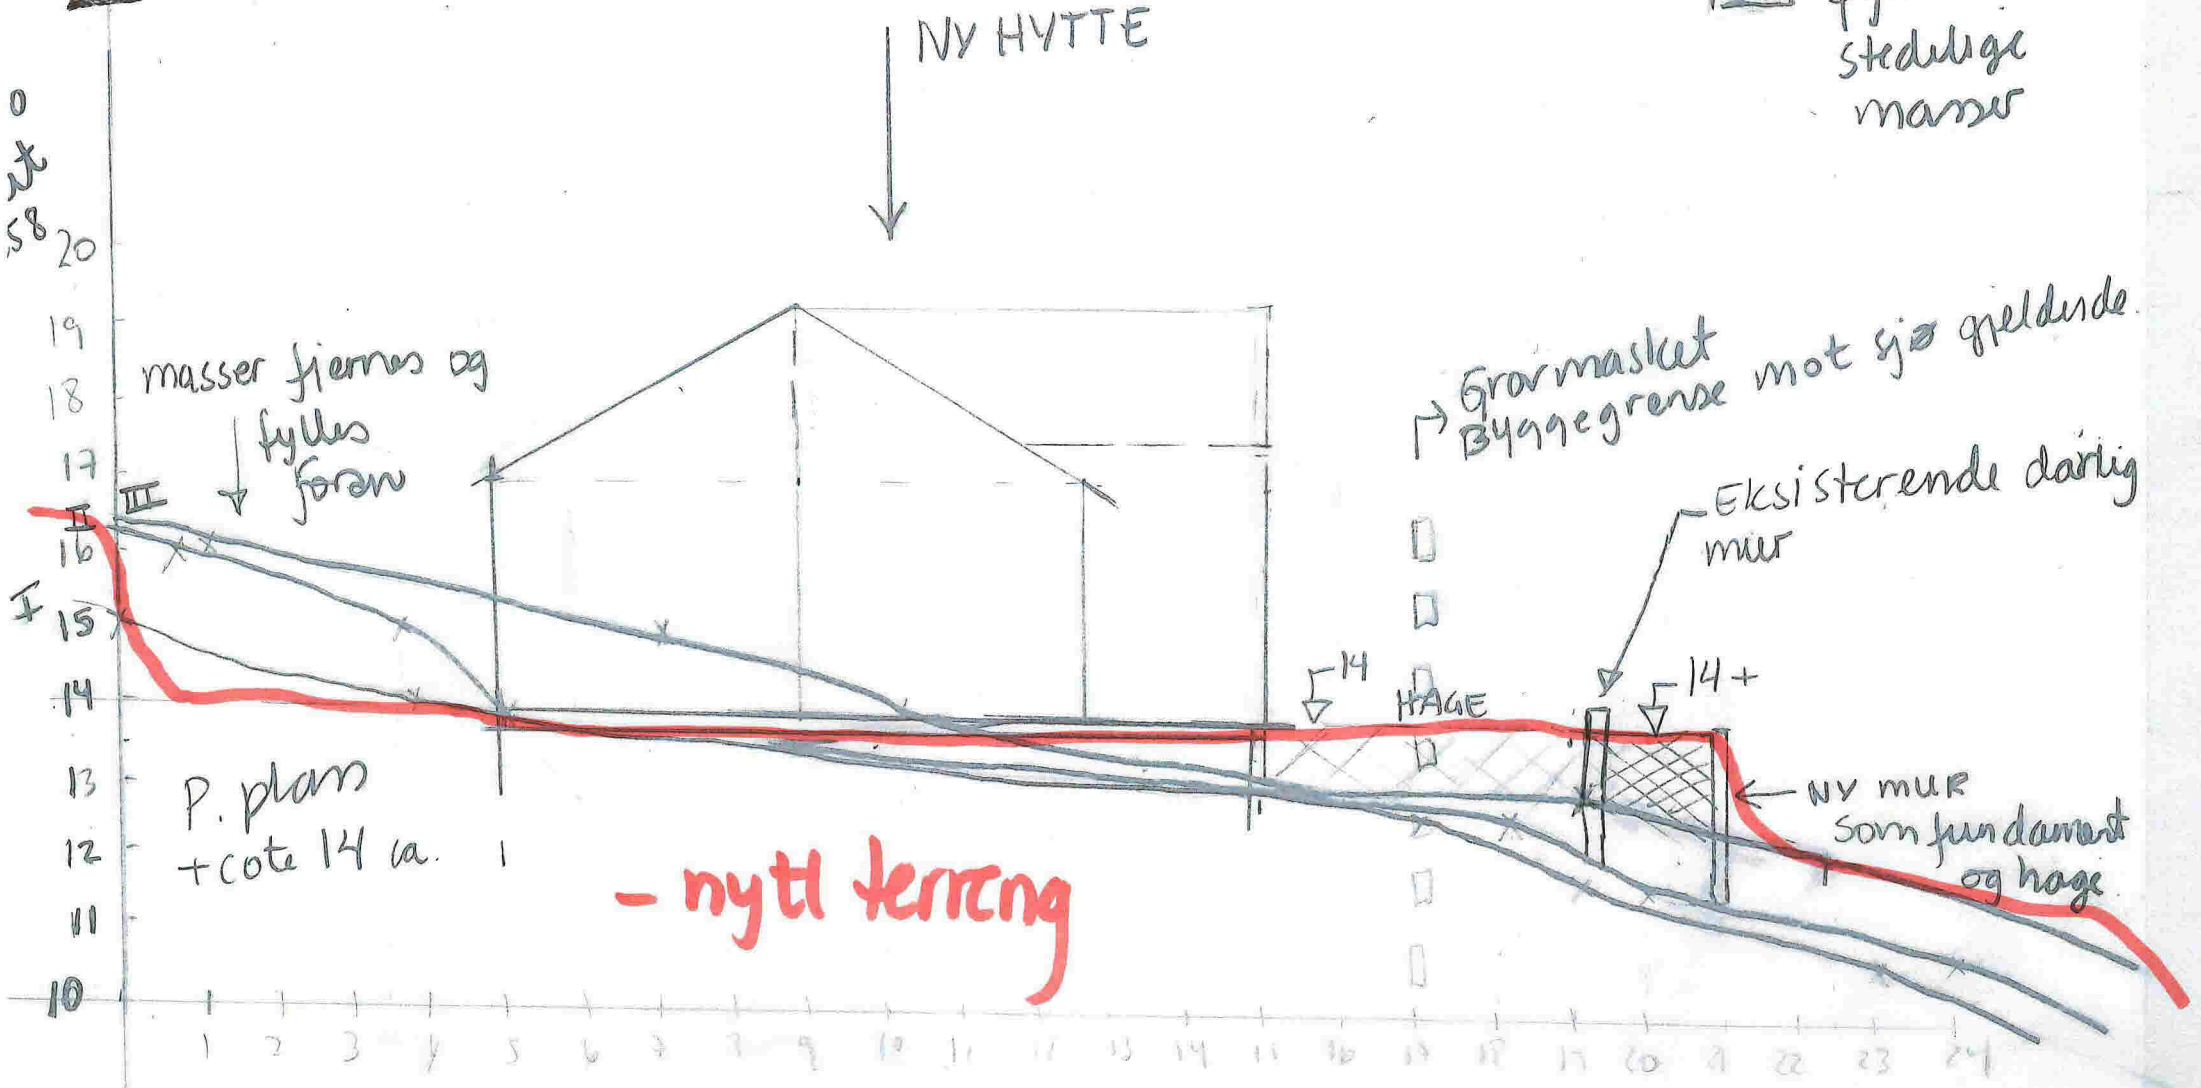 NY HYTTE
stedelige
masser
0
58
20
19
18
17
16
15
14
13
12
11
10
III
II
I
masser fjernes og
fylles
foran
Gravmasket
Byggegrense mot sjø gjeldende.
Eksisterende dårlig
mur
14
HAGE
14+
P. plass
+cote 14 ca.
- nytt terreng
NY MUR
som fundament
og hage.
1 2 3 4 5 6 7 8 9 10 11 12 13 14 15 16 17 18 19 20 21 22 23 24